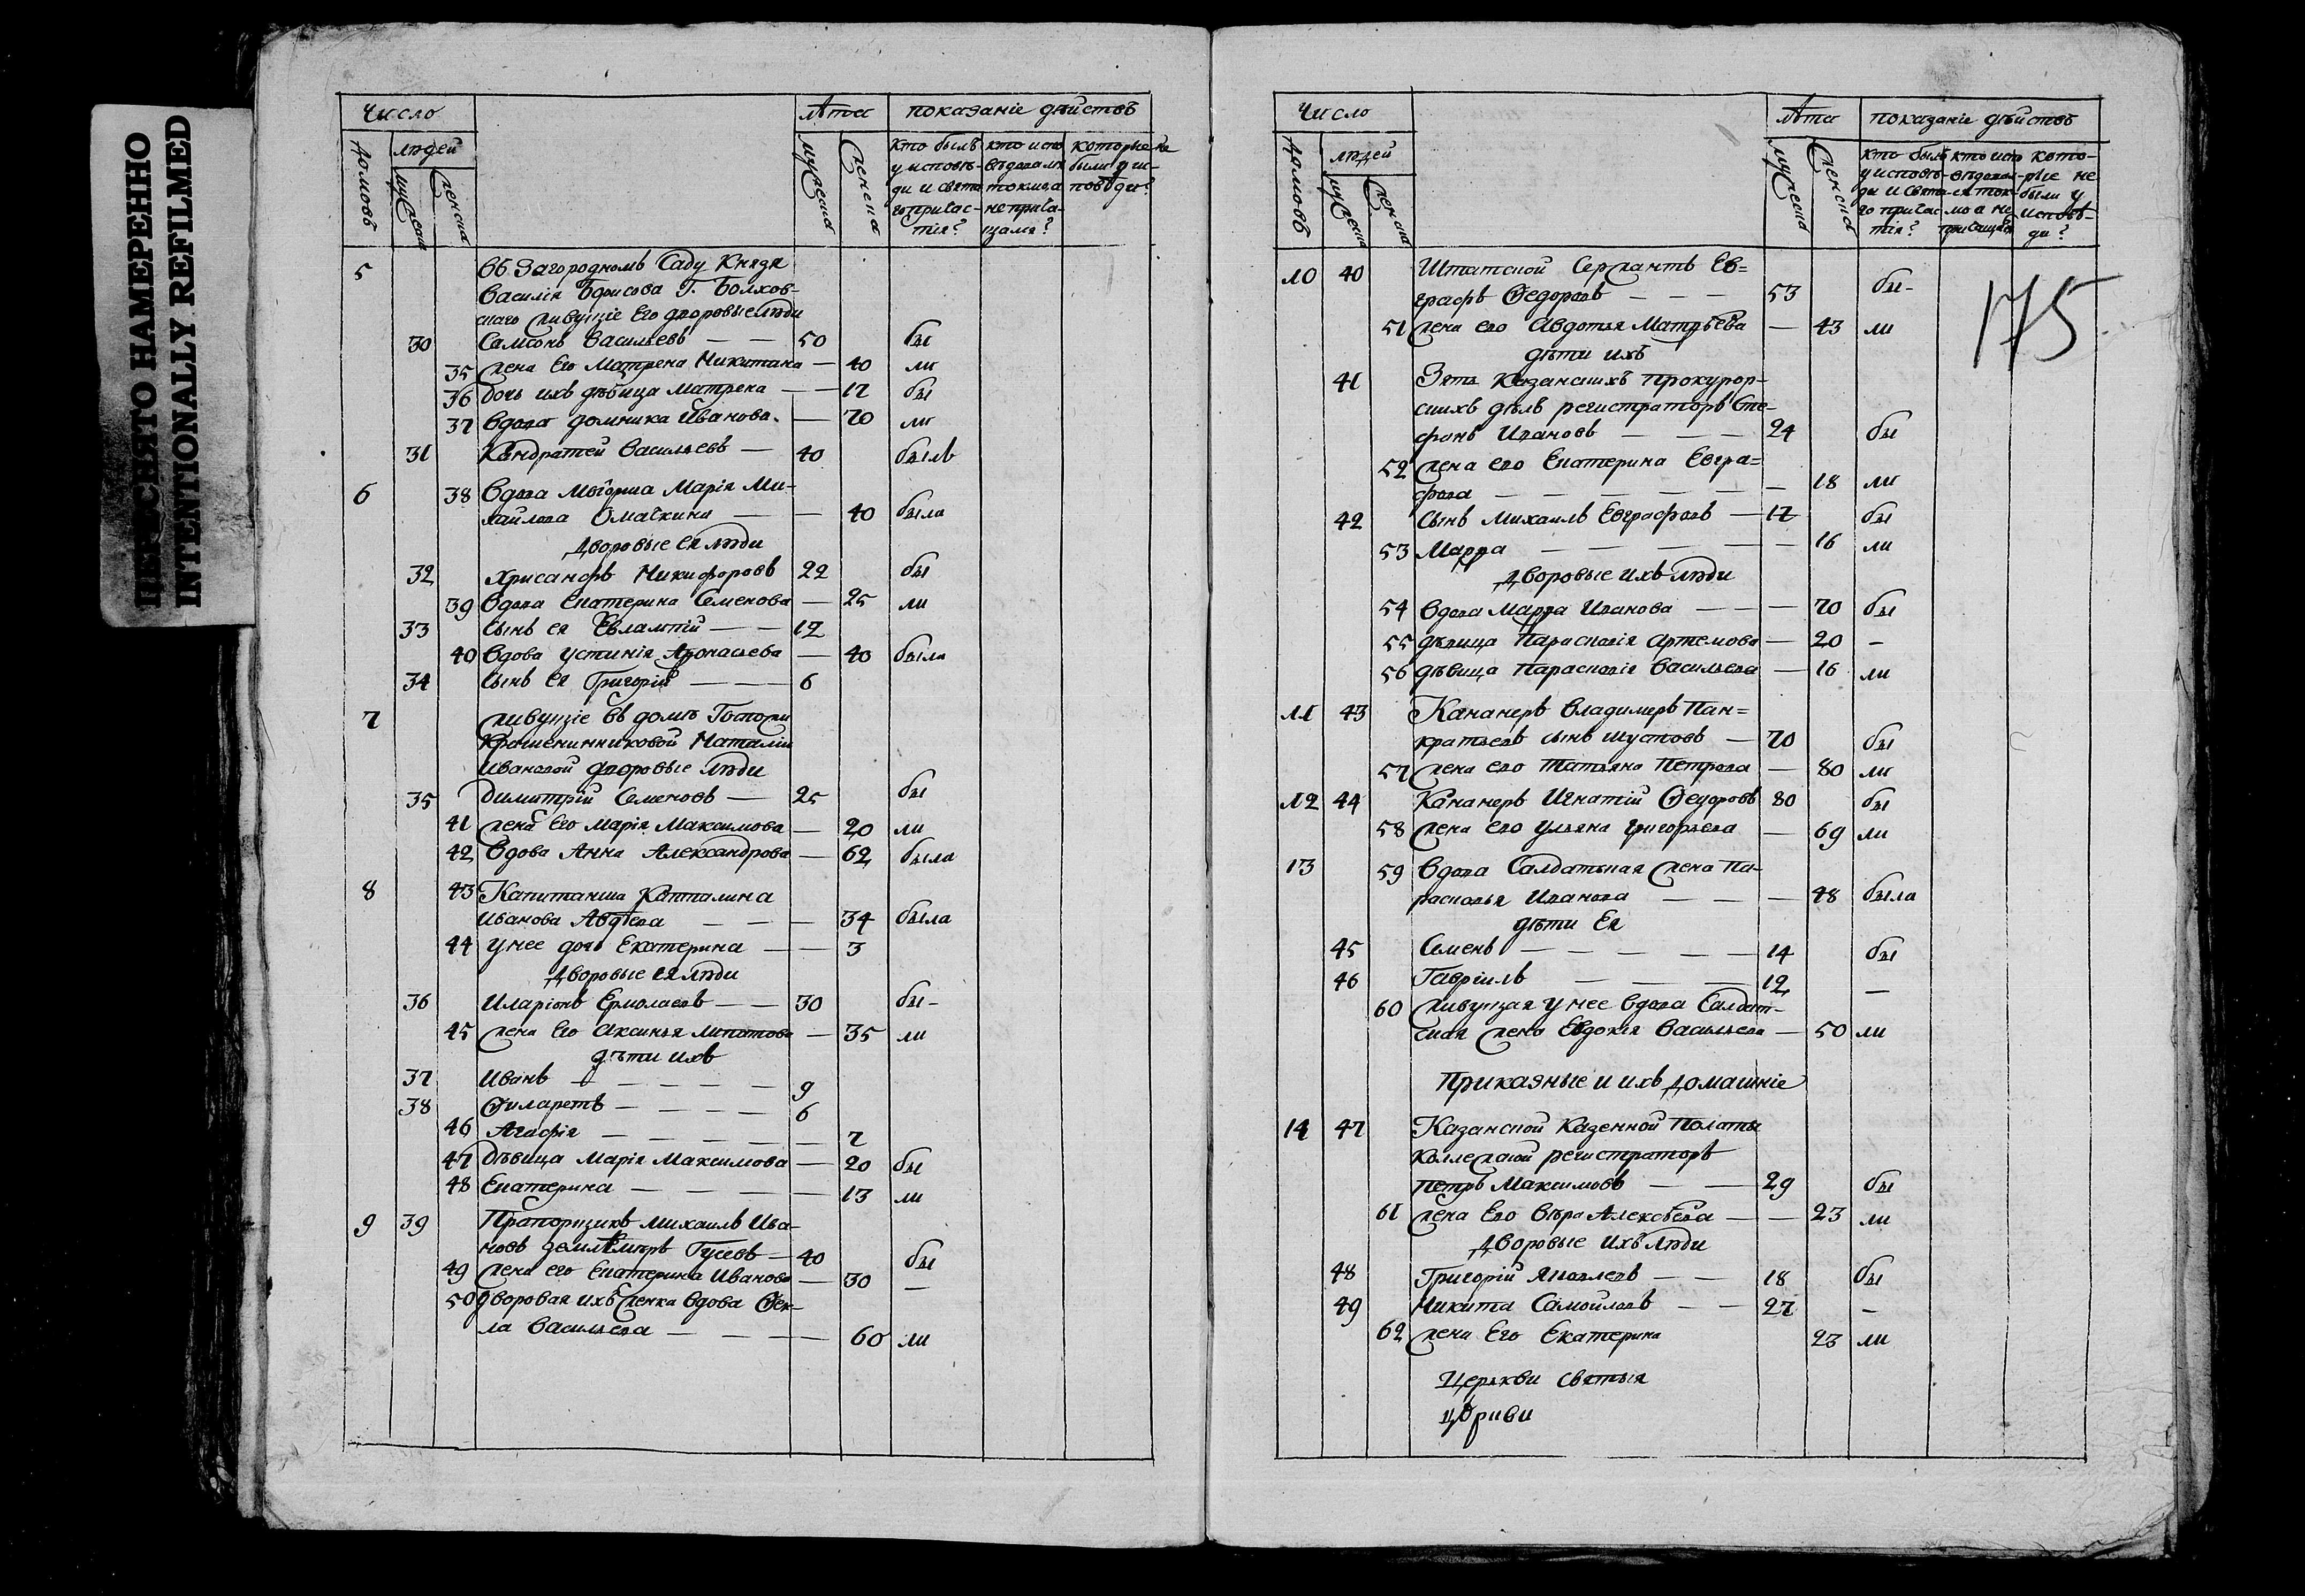 ПЕРЕСНЯТО НАМЕРЕННО
INTENTIONALLY REFILMED
Число лѣта показаніе дѣйствъ
домовъ людей мужеска женска мужеска женска
кто былъ у исповѣди и святаго причастія?
кто исповѣдовался токмо а не причащался?
которые не были у исповѣди?
5 Въ Загородномъ Саду Князя
Василія Борисова Г. Болховскаго живущіе Его дворовые люди
30 Самсонъ Васильевъ — — 50 бы
35 жена Его Матрена Никитина — 40 ли
36 дочь ихъ дѣвица Матрена — — 17 бы
37 Вдова домника Иванова — 70 ли
31 Кондратей Васильевъ — 40 былъ
6 38 Вдова Маіорша Марія Ми-
хайлова — — 40 была
Дворовые Ея люди
32 Хрисанфъ Никифоровъ 22 бы
39 Вдова Екатерина Семенова — 25 ли
33 сынъ ея Евлампій — — 12
40 Вдова Устинія Афонасьева — 40 была
34 сынъ Ея Григорій — — 6
7 живущіе въ домѣ Госпожи
Крашенинниковой Наталіи
Ивановой дворовые люди
35 Димитрій Семеновъ — 25 бы
41 жена Его Марія Максимова — 20 ли
42 Вдова Анна Александрова — 62 была
8 43 Капитанша Капталина
Иванова Авдѣева — — — 34 была
44 у нее дочь Екатерина — — 3
Дворовые ея люди
36 Иларіонъ Ермолаевъ — — 30 бы-
45 жена Его Аксинья Липатова — 35 ли
дѣти ихъ
37 Иванъ — — — — — 9
38 Филаретъ — — — — 6
46 Агафія — — — — — 7
47 Дѣвица Марія Максимова — 20 бы
48 Екатерина — — — — 13 ли
9 39 Прапорщикъ Михаилъ Ива-
новъ землемѣръ Гусевъ — 40 бы
49 жена его Екатерина Иванова — 30 —
50 дворовая ихъ женка Вдова Фек-
ла Васильева — — — — 60 ли
Число лѣта показаніе дѣйствъ
домовъ людей мужеска женска мужеска женска
кто былъ у исповѣди и святаго причастія?
кто исповѣдовался токмо а не причащался
которые не были у исповѣди?
175
10 40 Штатской Сержантъ Ев=
графъ Федоровъ — — — 53 бы-
51 жена его Авдотья Матвѣева — 43 ли
дѣти ихъ
41 Зять Казанскихъ прокурор-
скихъ дѣлъ регистраторъ Сте-
фанъ Ивановъ — — — 24 бы
52 жена его Екатерина Евгра=
фова — — — — — — 18 ли
42 сынъ Михаилъ Евграфовъ — 17 бы
53 Марфа — — — — — 16 ли
дворовые ихъ люди
54 Вдова Марфа Иванова — — — 70 бы
55 дѣвица Парасковія Артемова — 20 -
56 дѣвица Парасковія Васильева — 16 ли
11 43 Кананеръ Владимеръ Пан=
кратьевъ сынъ Шустовъ — 70 бы
57 жена его Татьяна Петрова — 80 ли
12 44 Кананеръ Игнатій Федоровъ 80 бы
58 жена его Ульяна Григорьева — 69 ли
13 59 Вдова Салдатская жена Па-
расковья Иванова — — — 48 была
дѣти Ея
45 Семенъ — — — — — 14 бы
46 Гавріилъ — — — — 12 —
60 живущая у нее Вдова Салдат-
ская жена Евдокія Васильева — 50 ли
Приказные и ихъ домашніе
14 47 Казанской Казенной Полаты
Коллежской регистраторъ
Петръ Максимовъ — — 29 бы
61 жена Его Вѣра Алексѣева — — 23 ли
Дворовые ихъ люди
48 Григорій Яковлевъ — — 18 бы
49 Никита Самойловъ — — 27 —
62 жена Его Екатерина 23 ли
Церькви святыя